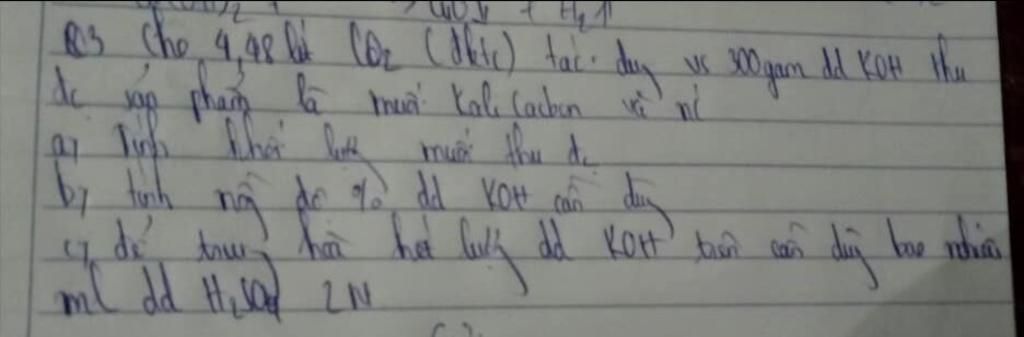 C3 Cho 4,48 lít CO2 (đktc) tác dụng vs 300gam dd KOH thu
đc sáp phẩm là muối Kali Cacbon và nc
a, Tính khối lượng muối thu đc
b, tính nồng độ % dd KOH cần dùng
c, để trung hoà hết lượng dd KOH trên cần dùng bao nhiêu
ml dd H2SO4 2M